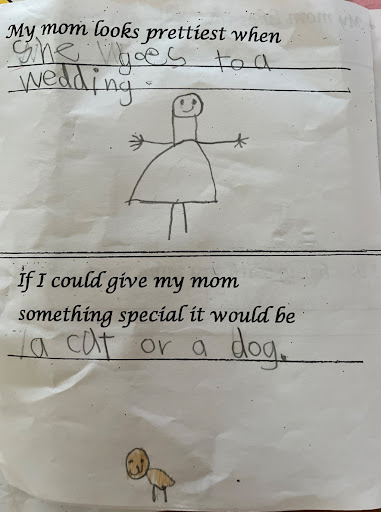 My mom looks prettiest when
She goes to a
wedding.
If I could give my mom
something special it would be
a cat or a dog.